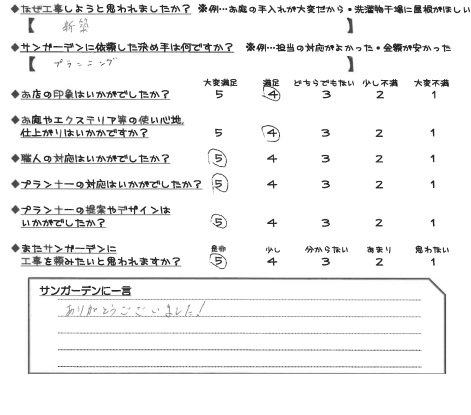 ◆なぜ工事しようと思われましたか？ ※例…お庭の手入れが大変だから・洗濯物干場に屋根がほしい
【 新築 】
◆サンガーデンに依頼した決め手は何ですか？ ※例…担当の対応がよかった・金額が安かった
【 プランニング 】
大変満足 満足 どちらでもない 少し不満 大変不満
◆お店の印象はいかがでしたか？ 5 4 3 2 1
◆お庭やエクステリア等の使い心地、
仕上がりはいかかですか？ 5 4 3 2 1
◆職人の対応はいかがでしたか？ 5 4 3 2 1
◆プランナーの対応はいかがでしたか？ 5 4 3 2 1
◆プランナーの提案やデザインは
いかがでしたか？ 5 4 3 2 1
是非 少し 分からない あまり 思わない
◆またサンガーデンに
工事を頼みたいと思われますか？ 5 4 3 2 1
サンガーデンに一言
ありがとうございました！